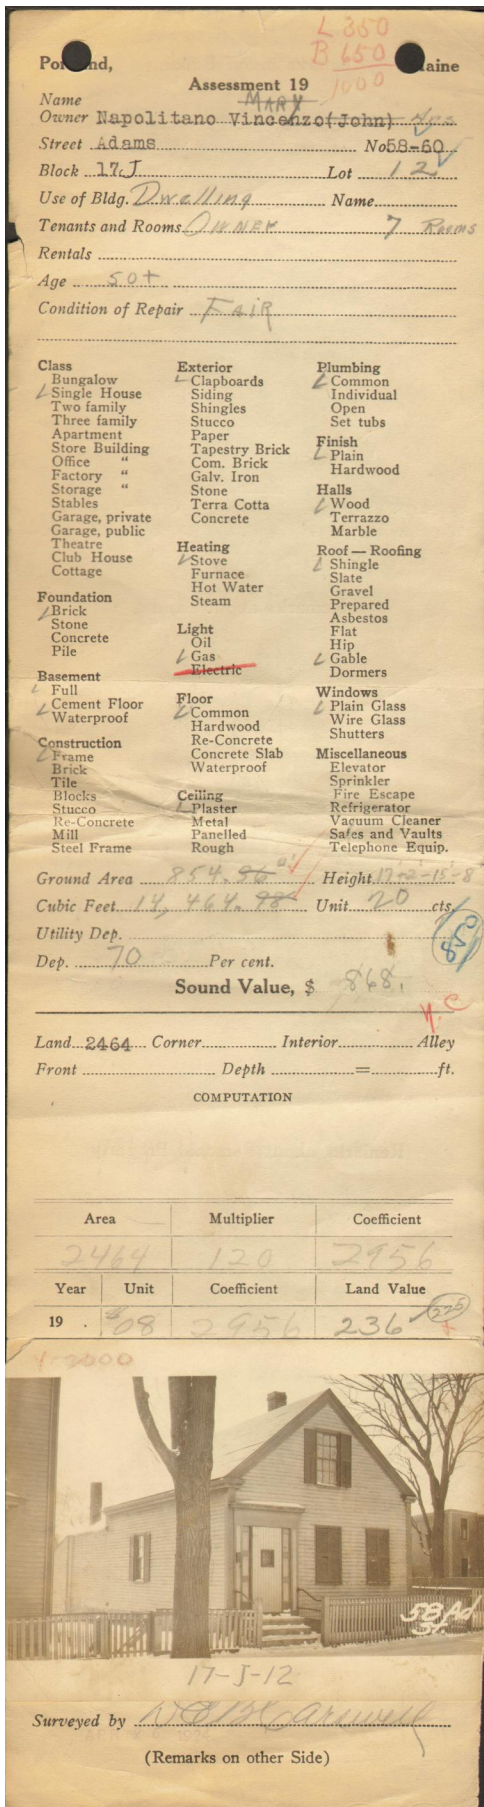 L 350
B 650
1000
Portland, Maine
Assessment 19
Name MARY
Owner Napolitano Vincenzo(John)
Street Adams No58-60
Block 17J Lot 12
Use of Bldg. Dwelling Name
Tenants and Rooms OWNER 7 Rooms
Rentals
Age 50+
Condition of Repair FAIR
Class
Bungalow
Single House
Two family
Three family
Apartment
Store Building
Office "
Factory "
Storage "
Stables
Garage, private
Garage, public
Theatre
Club House
Cottage
Foundation
Brick
Stone
Concrete
Pile
Basement
Full
Cement Floor
Waterproof
Construction
Frame
Brick
Tile
Blocks
Stucco
Re-Concrete
Mill
Steel Frame
Exterior
Clapboards
Siding
Shingles
Stucco
Paper
Tapestry Brick
Com. Brick
Galv. Iron
Stone
Terra Cotta
Concrete
Heating
Stove
Furnace
Hot Water
Steam
Light
Oil
Gas
Electric
Floor
Common
Hardwood
Re-Concrete
Concrete Slab
Waterproof
Ceiling
Plaster
Metal
Panelled
Rough
Plumbing
Common
Individual
Open
Set tubs
Finish
Plain
Hardwood
Halls
Wood
Terrazzo
Marble
Roof — Roofing
Shingle
Slate
Gravel
Prepared
Asbestos
Flat
Hip
Gable
Dormers
Windows
Plain Glass
Wire Glass
Shutters
Miscellaneous
Elevator
Sprinkler
Fire Escape
Refrigerator
Vacuum Cleaner
Safes and Vaults
Telephone Equip.
Ground Area 854.96 Height 17+2-15-8
Cubic Feet 14,464.98 Unit 20 cts.
Utility Dep.
850
Dep. 70 Per cent.
Sound Value, $ 868.
N.C
Land 2464 Corner Interior Alley
Front Depth = ft.
COMPUTATION
Area Multiplier Coefficient
2464 120 2956
Year Unit Coefficient Land Value
19 08 2956 236 225
58 Ad
St.
17-J-12
Surveyed by
(Remarks on other Side)